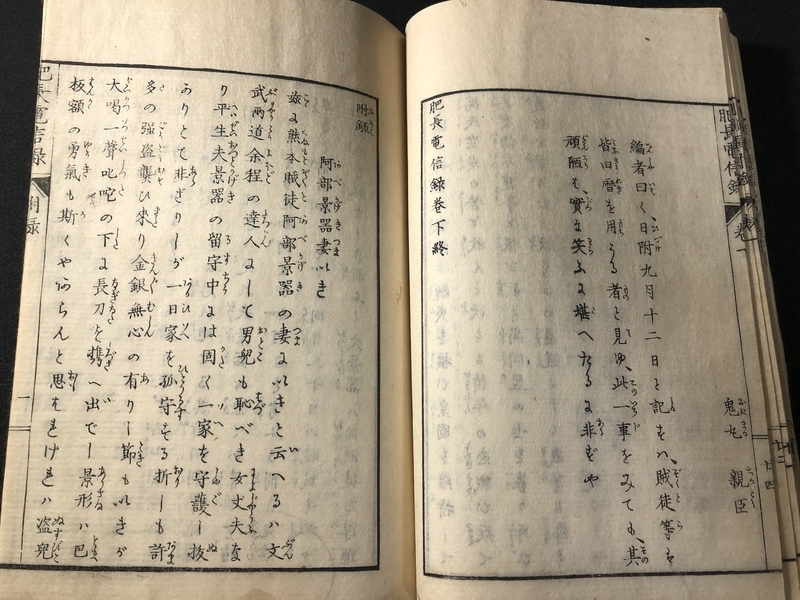 肥長電信録
廿四
鬼丸 親臣
編者曰く日附九月十二日と記すハ、賊徒等も
皆旧暦を用うる者と見ゆ、此一事をみても、其
頑陋も、實に笑ふに堪へたるに非ずや
肥長電信録巻下終
附録
阿部景器妻いき
茲に熊本賊徒阿部景器の妻にいきと云へるハ文
武両道余程の達人にして男児も恥べき女丈夫な
り平生夫景器の留守中にハ固く一家を守護し抜
かりとて非ざりしが一日家を孤守せる折しも許
多の強盗襲ひ来り金銀無心の有りし節もいきが
大喝一聲叱咜の下に長刀を携へ出でし景形ハ巴
板額の勇氣も斯くやあらんと思はれけれハ盗児
肥長電信録 附録 一